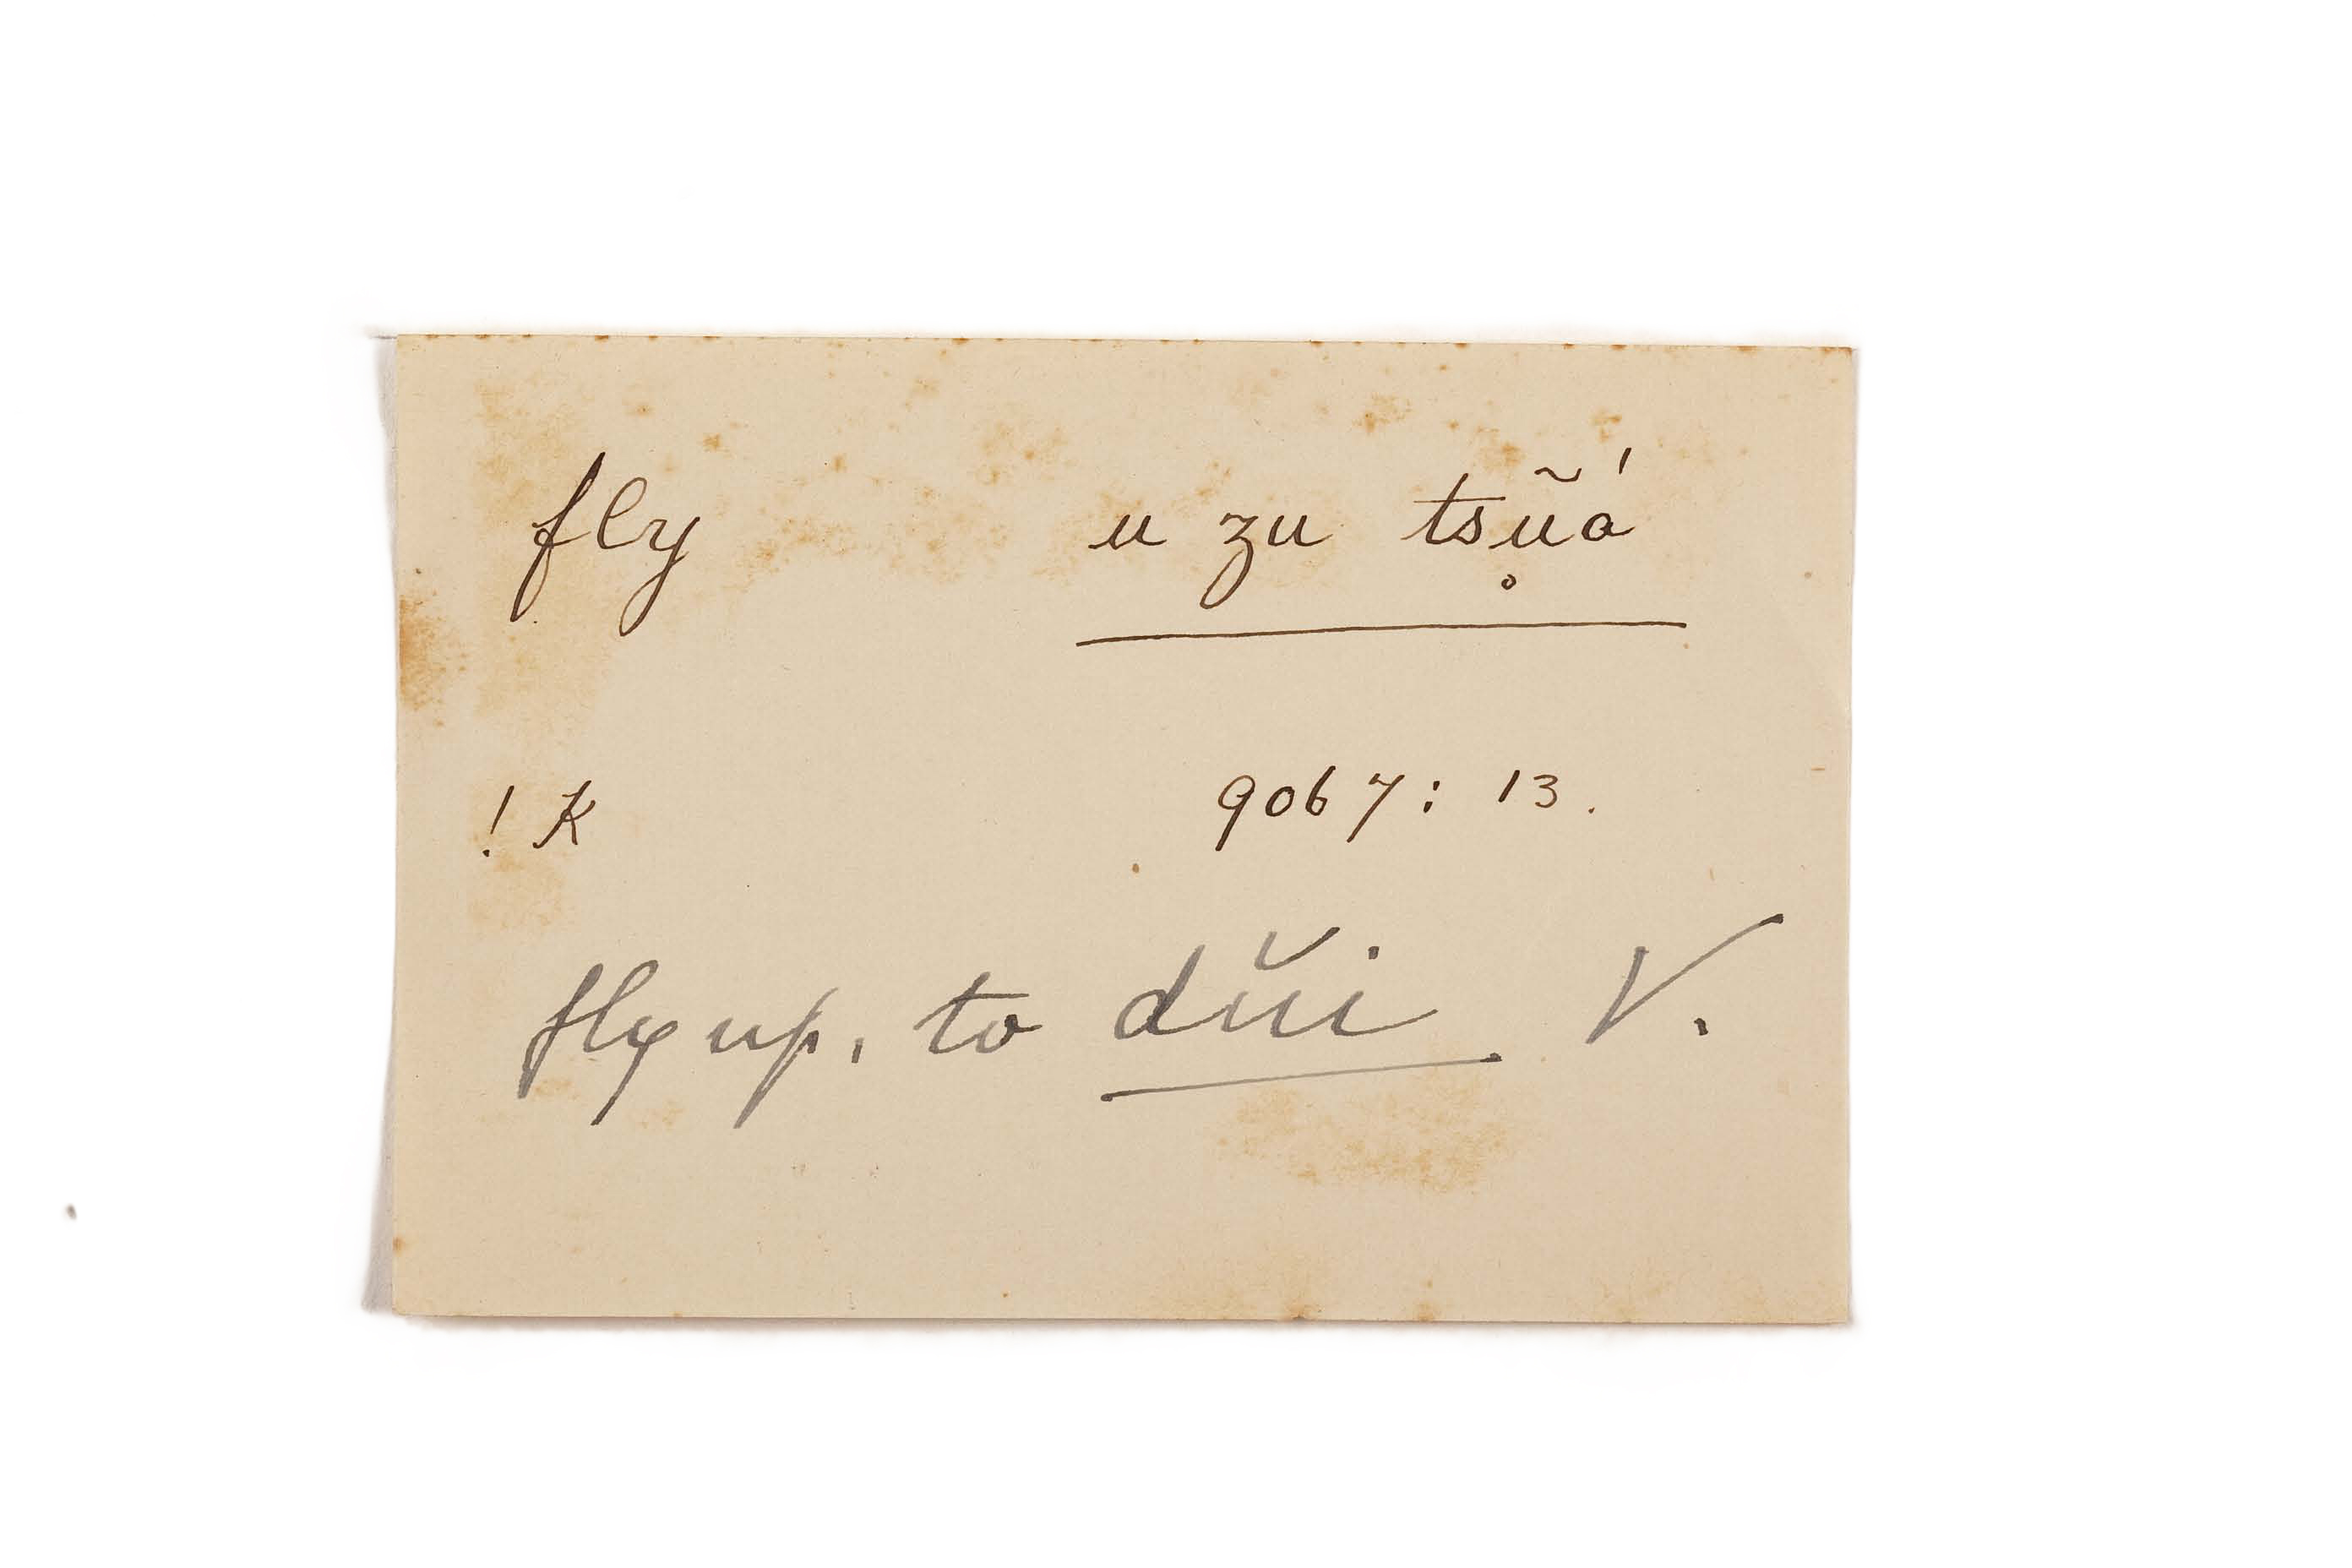 fly u zu tsũ̥á
! K 9067: 13.
fly up, to dŭi V.